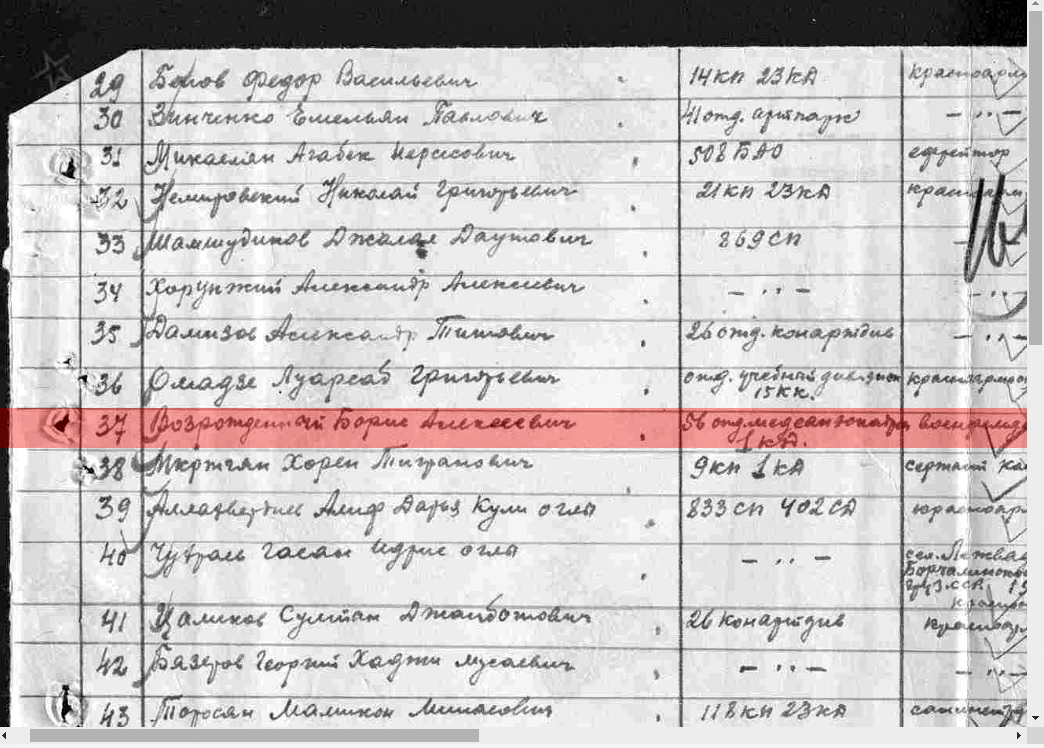 29 Белов Федор Васильевич 14 кп 23 КА красноарм
30 Зинченко Емельян Павлович 41 отд. артпарк — ,, —
31 Микаелян Агабек Нерсесович 508 БАО ефрейтор
32 Немировский Николай Григорьевич 21 кп 23 КА красноарм
33 Шамшудинов Джалал Даутович 869 сп
34 Хорунжий Александр Алексеевич — ,, — — ,, —
35 Дамизов Александр Титович 26 отд. конартдив — ,, —
36 Омадзе Луарсаб Григорьевич отд. учебный дивизион красноармеец
15 КК.
37 Возрожденный Борис Алексеевич 56 отд. медсанэскадрон военфельд
1 к/д.
38 Мкртчян Хорен Тигранович 9 кп 1 КА сержант
39 Алиф Дарья Кули оглы 833 сп 402 СД красноарм
40 Гасан Идрис оглы — ,, —
Груз. ССР.
41 Цаликов Султан Джанботович 26 Конартдив красноарм
42 Бязеров Георгий Хаджи Мусаевич — ,, — — ,, —
43 Торосян Мамикон Минасович 118 кп 23 КА санинстр